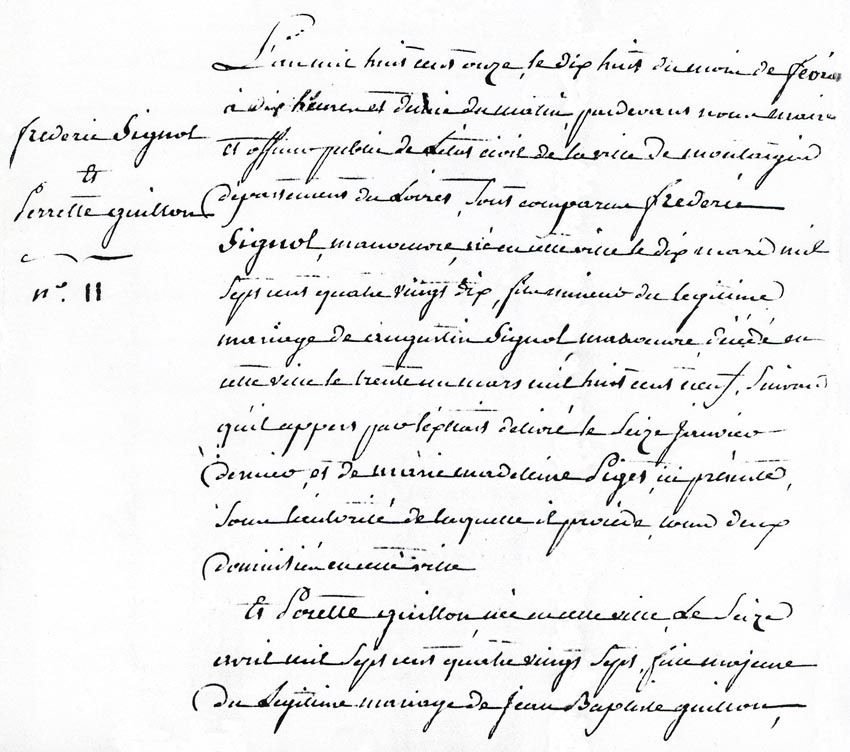 frederic Signol
Et
Perrette guillon
n°. 11
L'an mil huit cent onze, le dix huit du mois de fevri
à dix heures et demie du matin, pardevant nous maire
et officier public de l'état civil de la ville de montargis
département du Loiret, Sont comparus frederic
Signol, manoeuvre, né en cette ville le dix mars mil
Sept cent quatre vingt dix, fils mineur du legitime
mariage de augustin Signol, manoeuvre décédé en
cette ville le trente un mars mil huit cent neuf, Suivant
qu'il appert par l'extrait délivré le Seize Janvier
dernier, et de marie madeleine Piget, ici présente,
Sous l'autorité de laquelle il procède, tous deux
domiciliés en cette ville
Et Perette guillon, née en cette ville, Le Seize
avril mil Sept cent quatre vingt Sept, fille majeure
du Legitime mariage de Jean Baptiste guillon,